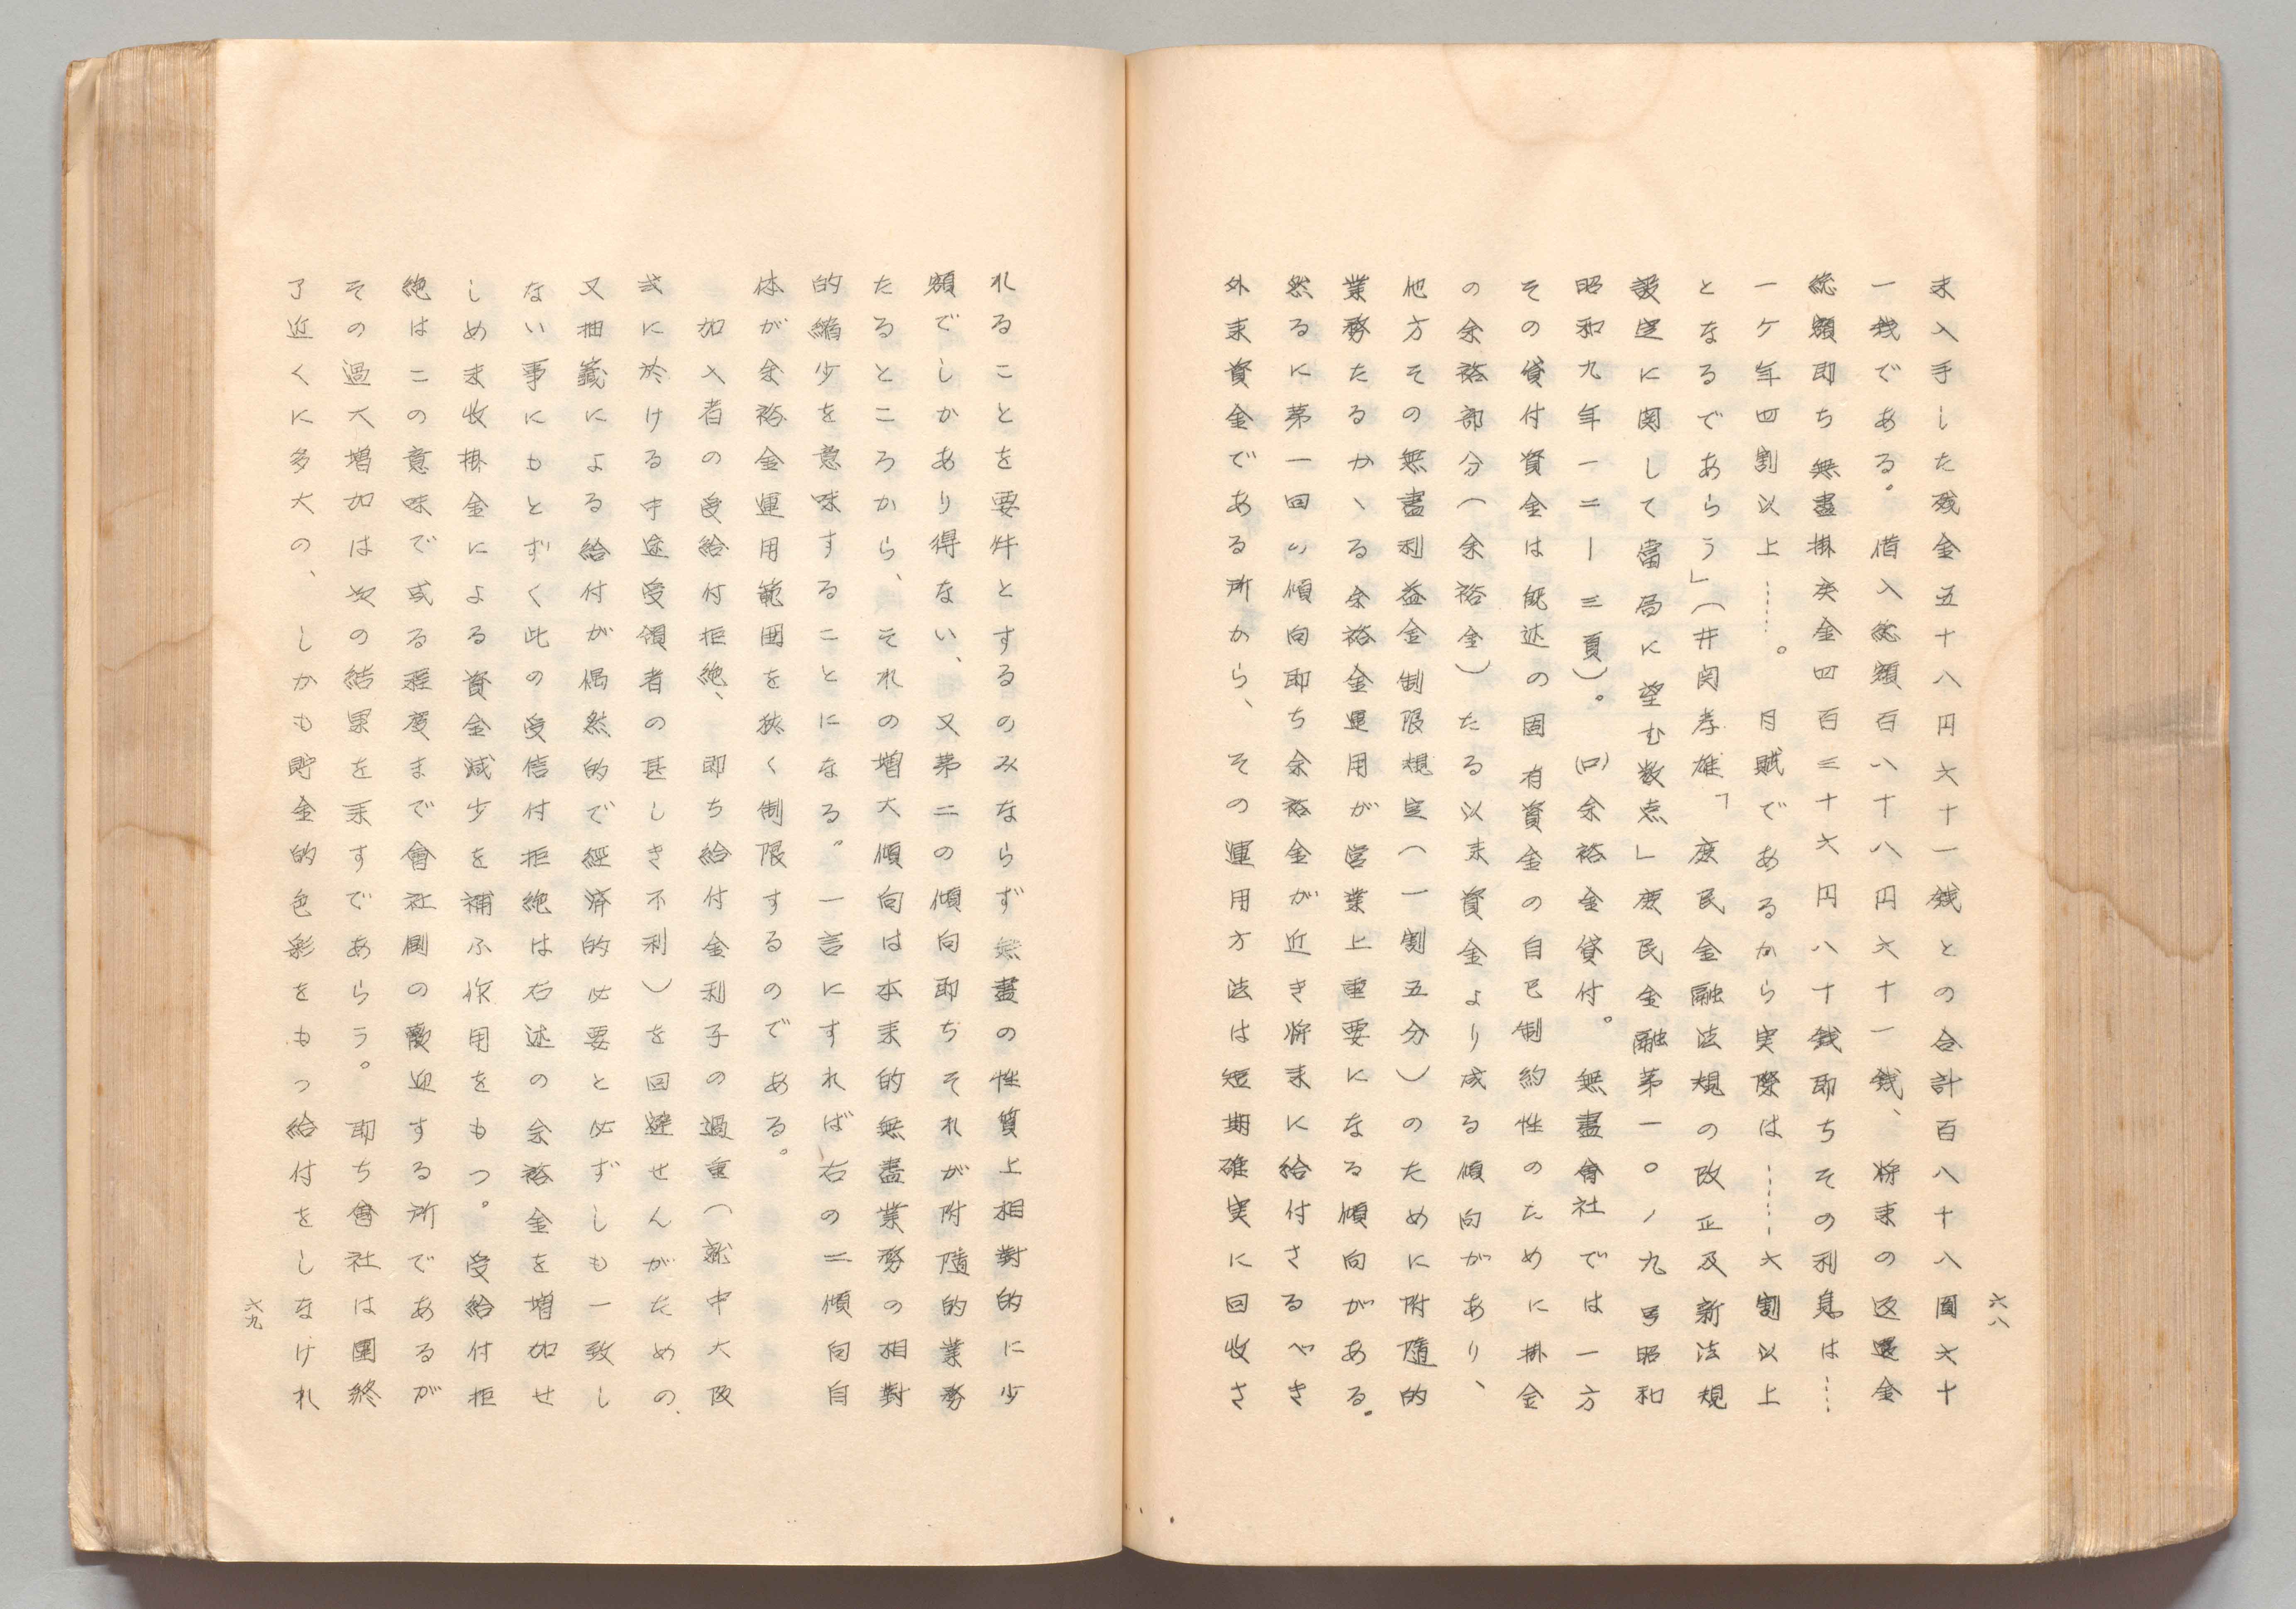 六八
来入手した残金五十八円六十一銭との合計百八十八圓六十
一銭である。借入総額百八十八円六十一銭、将来の返還金
総額即ち無盡掛戻金四百三十六円八十銭即ちその利息は……
一ケ年四割以上……。月賦であるから実際は……六割以上
となるであらう」（井関孝雄、「庶民金融法規の改正及新法規
設定に関して當局に望む数点」庶民金融第一〇ノ九号昭和
昭和九年一二ー三頁）。(ロ)余裕金貸付。無盡會社では一方
その貸付資金は既述の固有資金の自己制約性のために掛金
の余裕部分（余裕金）たる以来資金より成る傾向があり、
他方その無盡利益金制限規定（一割五分）のために附隨的
業務たるかゝる余裕金運用が営業上重要になる傾向がある。
然るに第一回の傾向即ち余裕金が近き将来に給付さるべき
外来資金である所から、その運用方法は短期確実に回收さ
れることを要件とするのみならず無盡の性質上相對的に少
額でしかあり得ない、又第二の傾向即ちそれが附隨的業務
たるところから、それの増大傾向は本来的無盡業務の相對
的縮少を意味することになる。一言にすれば、右の二傾向自
体が余裕金運用範囲を狭く制限するのである。
加入者の受給付拒絶、即ち給付金利子の過重（就中大阪
式に於ける中途受領者の甚しき不利）を回避せんがための、
又抽籤による給付が偶然的で経済的必要と必ずしも一致し
ない事にもとずく此の受信付拒絶は右述の余裕金を増加せ
しめ未收掛金による資金減少を補ふ作用をもつ。受給付拒
絶はこの意味で或る程度まで會社側の歡迎する所であるが
その過大増加は次の結果を来すであらう。即ち會社は團終
了近くに多大の、しかも貯金的色彩をもつ給付をしなけれ
六九